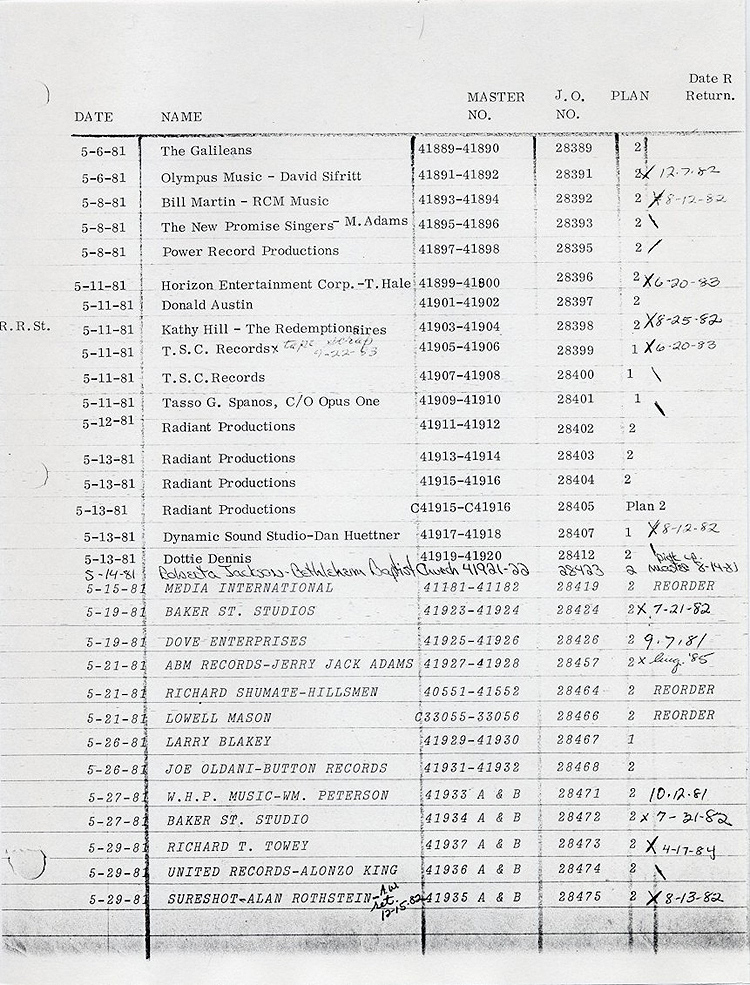 Date R
MASTER J.O. PLAN Return.
DATE NAME NO. NO.
5-6-81 The Galileans 41889-41890 28389 2
5-6-81 Olympus Music - David Sifritt 41891-41892 28391 2X 12-7-82
5-8-81 Bill Martin - RCM Music 41893-41894 28392 2 X8-12-82
5-8-81 The New Promise Singers- M. Adams 41895-41896 28393 2 \
5-8-81 Power Record Productions 41897-41898 28395 2 /
5-11-81 Horizon Entertainment Corp.-T. Hale 41899-41900 28396 2 X6-20-83
5-11-81 Donald Austin 41901-41902 28397 2
R.R.St. 5-11-81 Kathy Hill - The Redemptionaires 41903-41904 28398 2 X8-25-82
5-11-81 T.S.C. Records x tape scrap 41905-41906 28399 1 X6-20-83
9-22-83
5-11-81 T.S.C. Records 41907-41908 28400 1 \
5-11-81 Tasso G. Spanos, C/O Opus One 41909-41910 28401 1 \
5-12-81 Radiant Productions 41911-41912 28402 2
5-13-81 Radiant Productions 41913-41914 28403 2
5-13-81 Radiant Productions 41915-41916 28404 2
5-13-81 Radiant Productions C41915-C41916 28405 Plan 2
5-13-81 Dynamic Sound Studio-Dan Huettner 41917-41918 28407 1 X8-12-82
5-13-81 Dottie Dennis 41919-41920 28412 2 \ pick up
5-14-81 Roberta Jackson-Bethlehem Baptist Church 41921-22 28423 2 master 8-14-81
5-15-81 MEDIA INTERNATIONAL 41181-41182 28419 2 REORDER
5-19-81 BAKER ST. STUDIOS 41923-41924 28424 2X 7-21-82
5-19-81 DOVE ENTERPRISES 41925-41926 28426 2 9.7.81
5-21-81 ABM RECORDS-JERRY JACK ADAMS 41927-41928 28457 2 x Aug. '85
5-21-81 RICHARD SHUMATE-HILLSMEN 40551-41552 28464 2 REORDER
5-21-81 LOWELL MASON C33055-33056 28466 2 REORDER
5-26-81 LARRY BLAKEY 41929-41930 28467 1
5-26-81 JOE OLDANI-BUTTON RECORDS 41931-41932 28468 2
5-27-81 W.H.P. MUSIC-WM. PETERSON 41933 A & B 28471 2 10.12.81
5-27-81 BAKER ST. STUDIO 41934 A & B 28472 2 x 7-21-82
5-29-81 RICHARD T. TOWEY 41937 A & B 28473 2 X 4-17-84
5-29-81 UNITED RECORDS-ALONZO KING 41936 A & B 28474 2 \
5-29-81 SURESHOT-ALAN ROTHSTEIN-A.W. 41935 A & B 28475 2 X 8-13-82
ret.
12-15-82